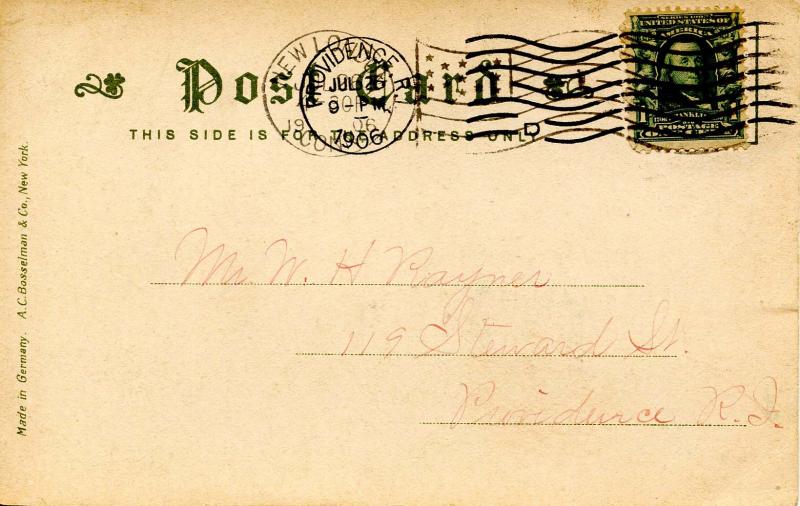 Post Card
THIS SIDE IS FOR THE ADDRESS ONLY
NEW LONDON
CONN.
1906
PROVIDENCE, R.I.
JUL 26
9 PM
1906
D
SERIES 1902
UNITED STATES OF
AMERICA
FRANKLIN
POSTAGE
Mr. W. H Rayner
119 Steward St.
Providence R.I.
Made in Germany. A.C. Bosselman & Co., New York.